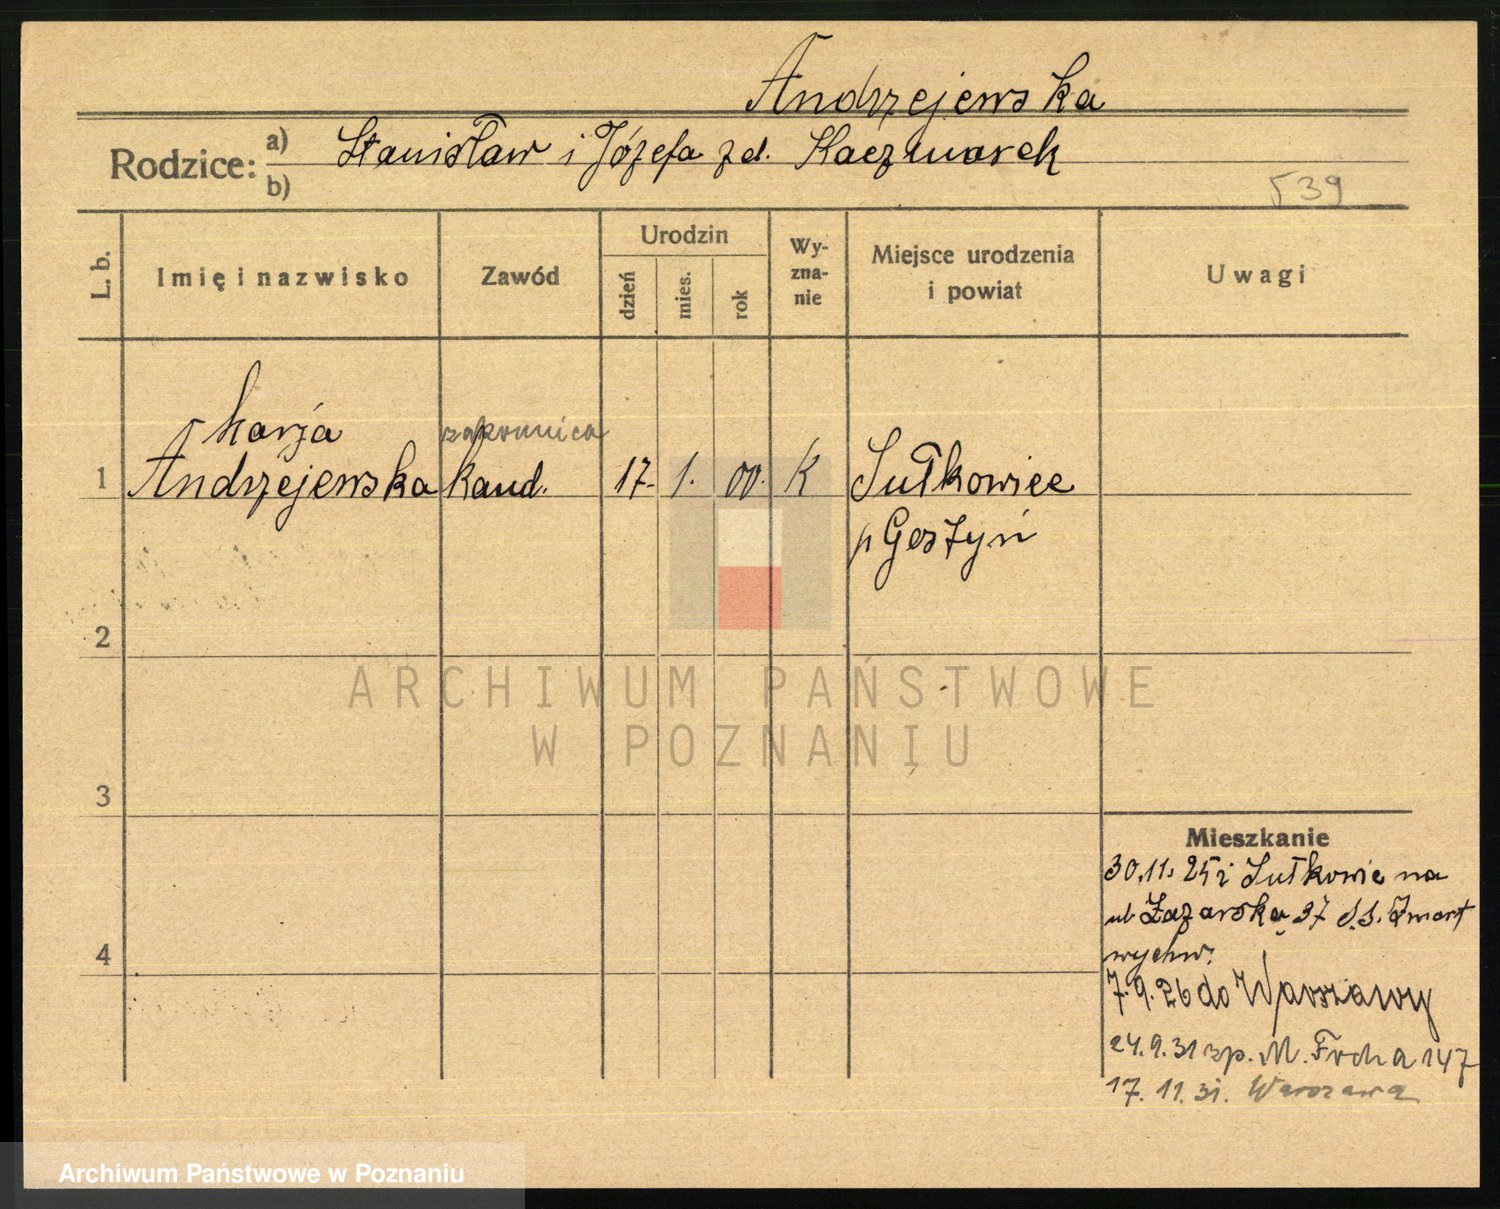 Andrzejewska
Rodzice: a) Stanisław i Józefa z d. Kaczmarek
b)
539
L. b.
Imię i nazwisko
Zawód
Urodzin
dzień
mies.
rok
Wy-
zna-
nie
Miejsce urodzenia
i powiat
Uwagi
Marja zakonnica
1 Andrzejewska kand. 17. 1. 00. K Sułkowice
p Gostyń
2
ARCHIWUM PAŃSTWOWE
W POZNANIU
3
Mieszkanie
30.11.25 z Sułkowic na
ul Łazarska 37 S.S. Zmart
wychw.
4
7.9.26 do Warszawy
24.9.31 zp. M. Focha 147
17.11.31. Warszawa
Archiwum Państwowe w Poznaniu